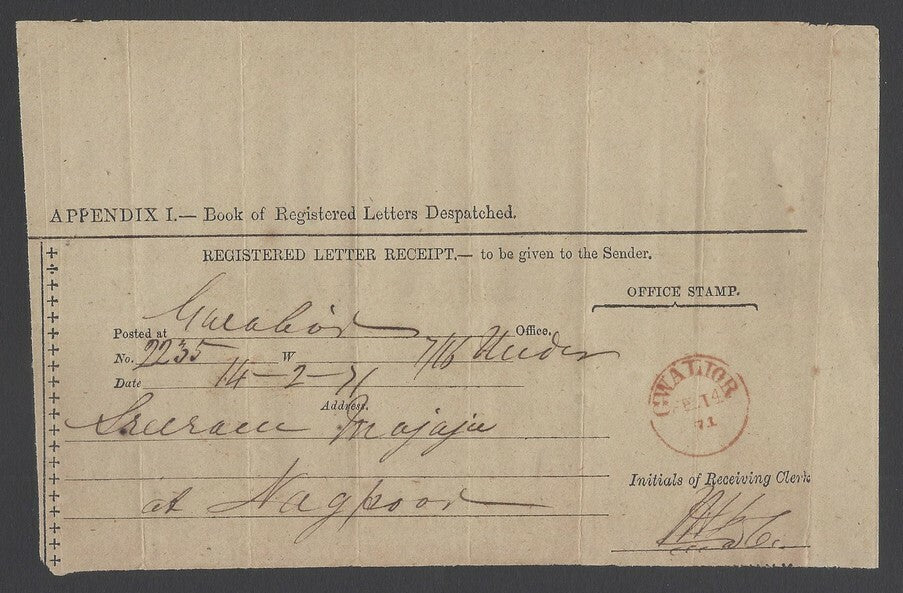 APPENDIX I.— Book of Registered Letters Despatched.
REGISTERED LETTER RECEIPT.— to be given to the Sender.
OFFICE STAMP.
Posted at Gwalior Office.
No. 2235 W
Date 14-2-71
Address.
at Nagpoor
GWALIOR
FE. 14
71
Initials of Receiving Clerk